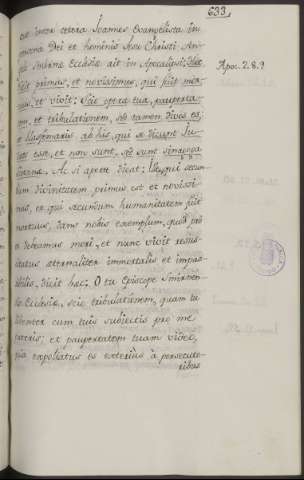 633
est inter cetera Joannes Evangelista in
persona Dei et hominis Jesu Christi An-
gelo Smirne Ecclesie ait in Apocalipsi: Hec
dicit primus, et novissimus, qui fuit mor-
tuus, et vivit; Scio opera tua, pauperta-
tem, et tribulationem, sed tamen dives es;
et blasphemaris ab his, qui se dicunt Ju-
deos esse, et non sunt, sed sunt sinagoga
Satane. Ac si aperte dicat; Is qui secun-
dum divinitatem primus est et novissi-
mus, et qui secundum humanitatem fuit
mortuus, dans nobis exemplum, quod pro
eo debeamus mori, et nunc vivit resus-
citatus eternaliter immortalis et impas-
sibilis, dicit hec: O tu Episcope Smirnen-
sis Ecclesie, scio tribulationem, quam tu
libenter cum tuis subjectis pro me
pateris; et paupertatem tuam video,
quia expoliatus es exterius à persecuto-
ribus
Apoc. 2. 8. 9